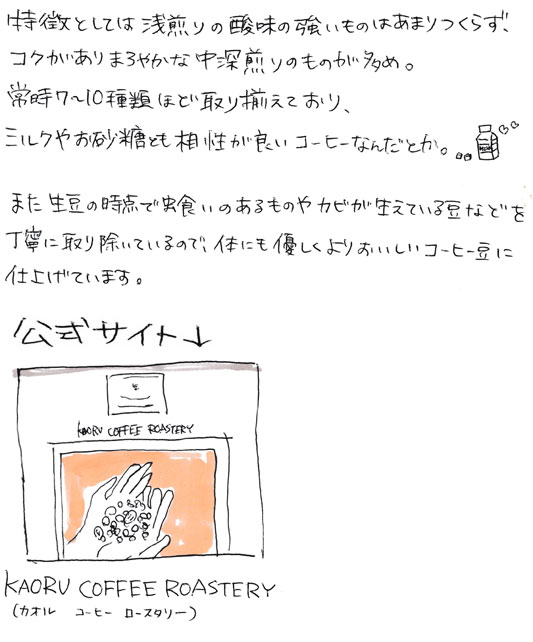 特徴としては浅煎りの酸味の強いものはあまりつくらず、
コクがありまろやかな中深煎りのものが多め。
常時7〜10種類ほど取り揃えており、
ミルクやお砂糖とも相性が良いコーヒーなんだとか。
また生豆の時点で虫食いのあるものやカビが生えている豆などを
丁寧に取り除いているので、体にも優しくよりおいしいコーヒー豆に
仕上げています。
公式サイト↓
KAORU COFFEE ROASTERY
KAORU COFFEE ROASTERY
(カオル コーヒー ロースタリー)